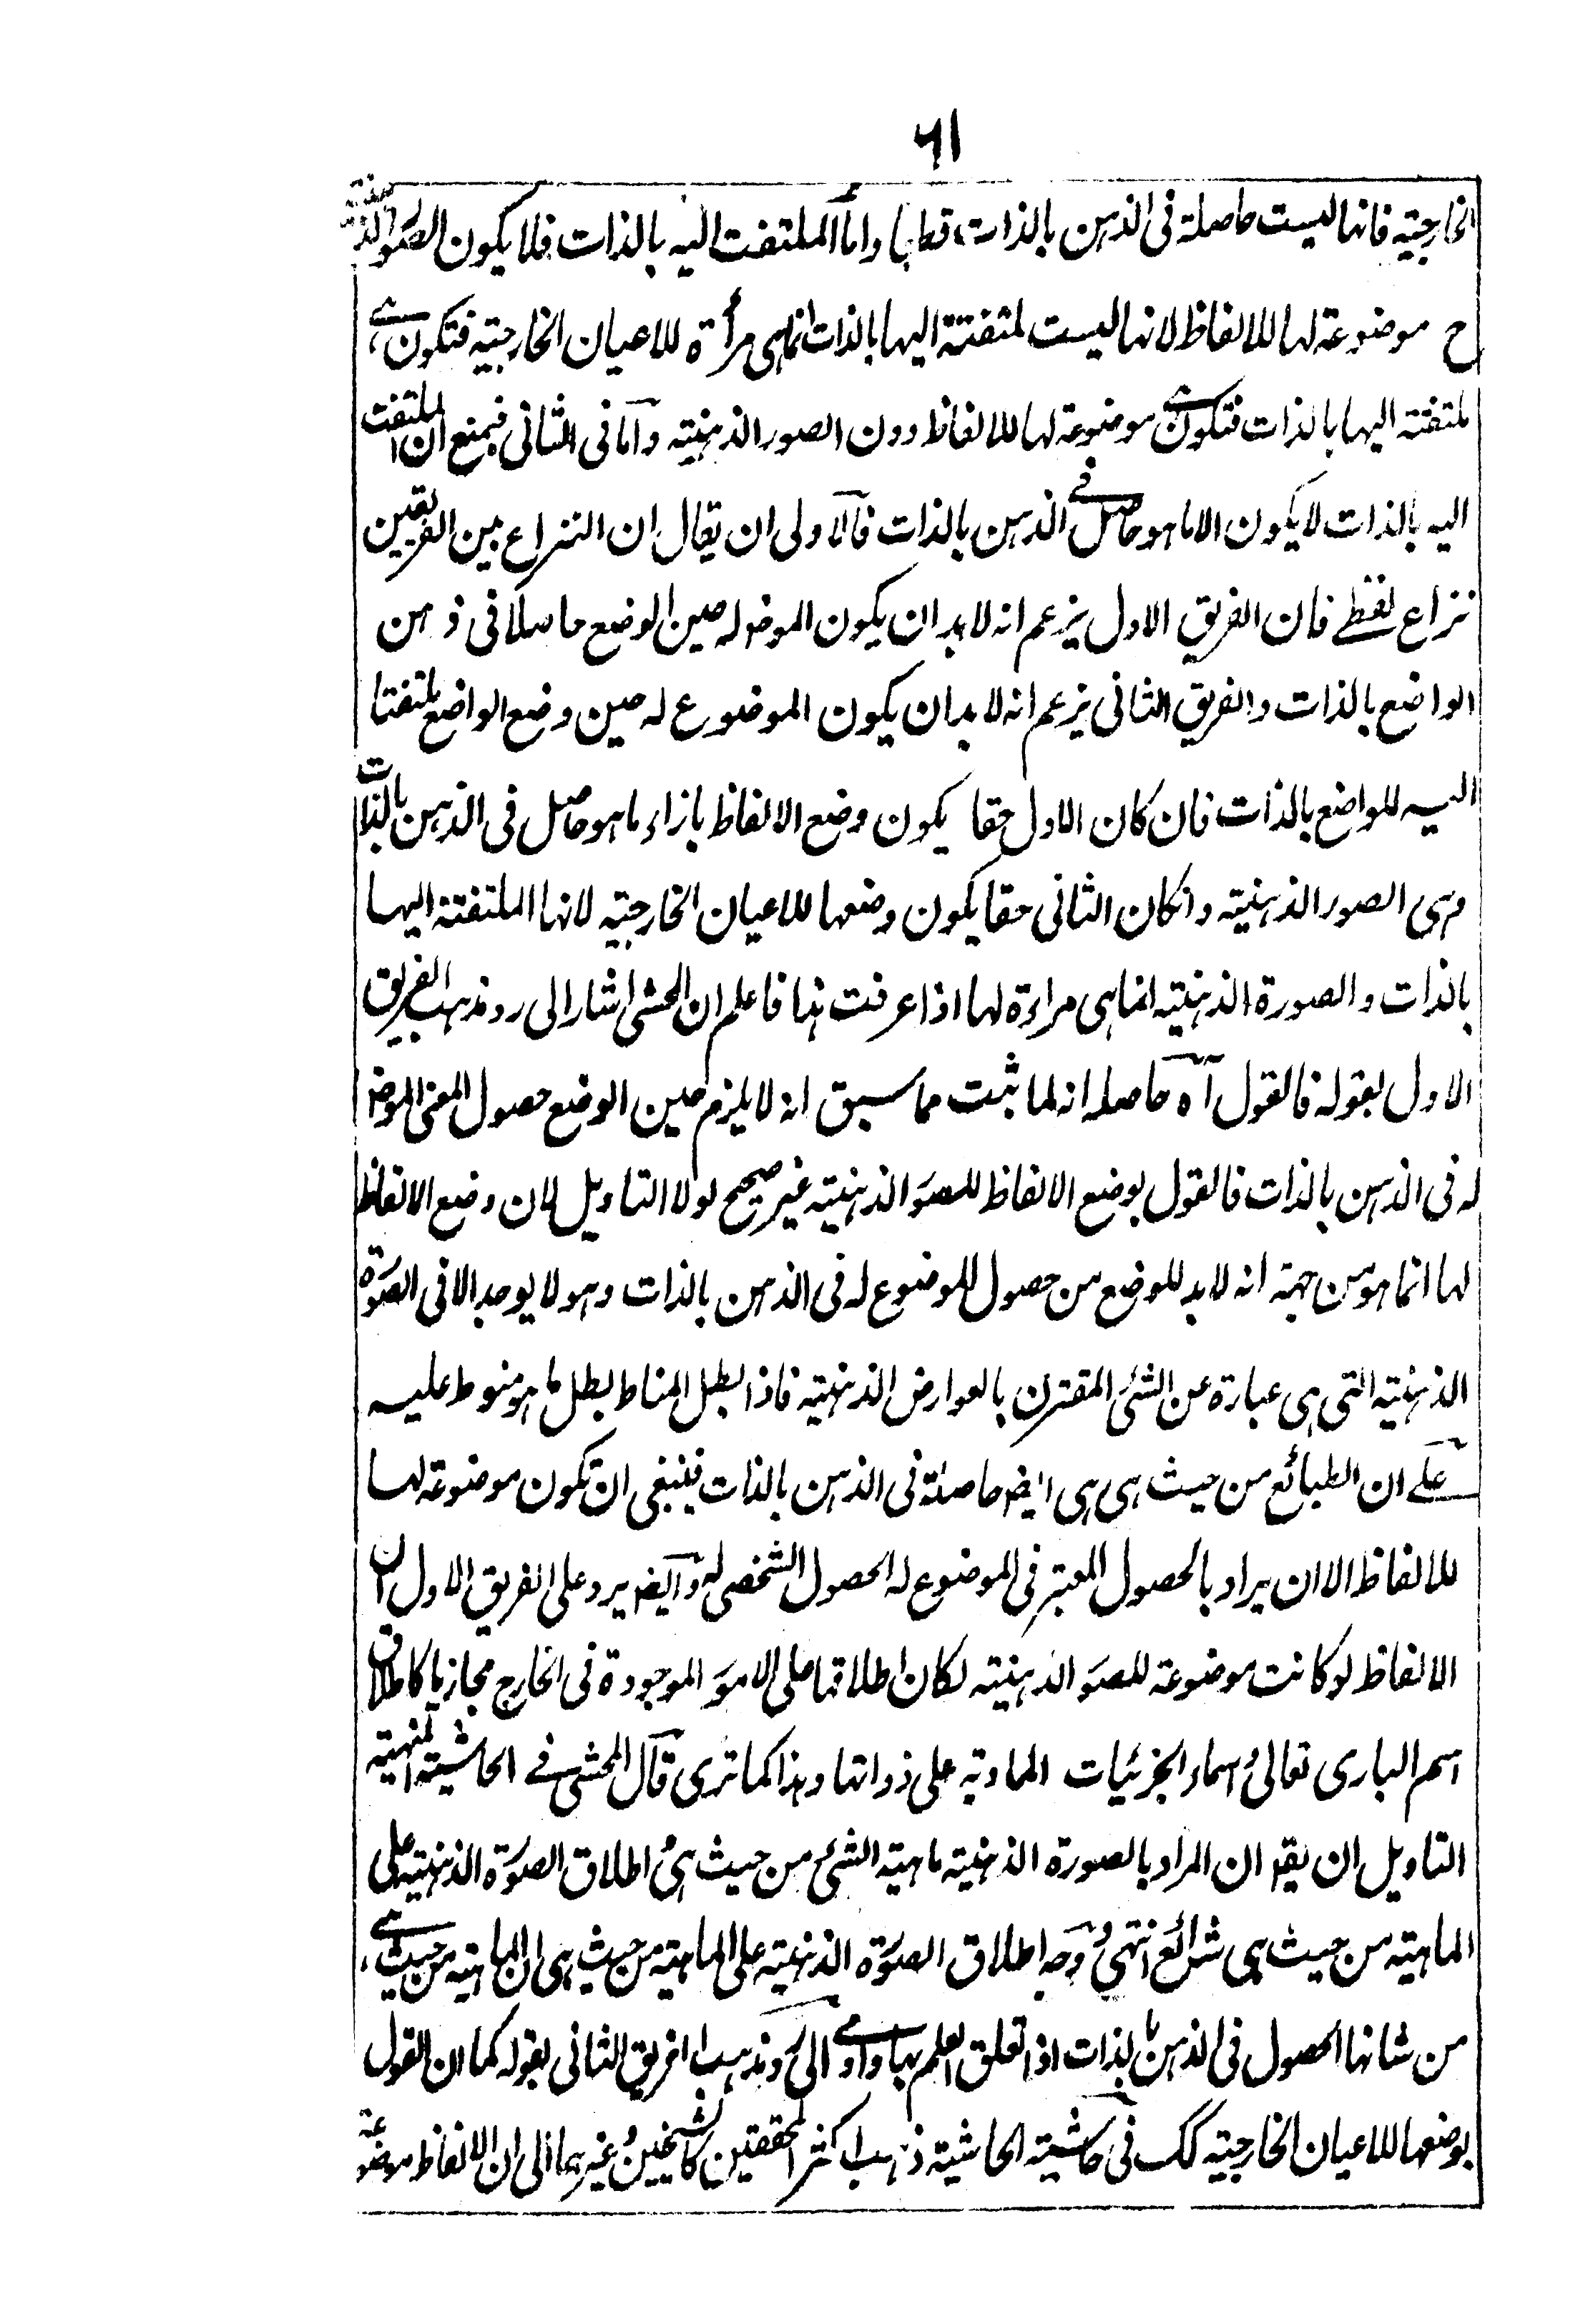 ٦١
الخارجية فانها ليست حاصلة فى الذهن بالذات قطعا واما الملتفت اليه بالذات فلا يكون الصور الذهنية
ح موضوعة لها للالفاظ لانها ليست ملتفتة اليها بالذات انما هى مرأة للاعيان الخارجية فتكون هى
ملتفتة اليها بالذات فتكون هى موضوعة لها للالفاظ دون الصور الذهنية واما فى الثانى فبمنع ان الملتفت
اليه بالذات لا يكون الا ما هو حاصل فى الذهن بالذات فالاولى ان يقال ان النزاع بين الفريقين
نزاع لفظى فان الفريق الاول يزعم انه لابد ان يكون الموضو له حين الوضع حاصلا فى ذهن
الواضع بالذات والفريق الثانى يزعم انه لابد ان يكون الموضوع له حين وضع الواضع ملتفتا
اليه للواضع بالذات فان كان الاول حقا يكون وضع الالفاظ بازاء ما هو حاصل فى الذهن بالذات
وهى الصور الذهنية وانكان الثانى حقا يكون وضعها للاعيان الخارجية لانها الملتفتة اليها
بالذات والصورة الذهنية انما هى مراءة لها اذا عرفت هذا فاعلم ان المحشى اشار الى رد مذهب الفريق
الاول بقوله فالقول آه حاصله انه لما ثبت مما سبق انه لا يلزم حين الوضع حصول المعنى الموضو
له فى الذهن بالذات فالقول بوضع الالفاظ للصور الذهنية غير صحيح لولا التاويل لان وضع الالفاظ
لها انما هو من جهة انه لابد للوضع من حصول الموضوع له فى الذهن بالذات وهو لا يوجد الا فى الصورة
الذهنية التى هى عبارة عن الشئ المقترن بالعوارض الذهنية فاذا بطل المناط بطل ما هو منوط عليه
على ان الطبائع من حيث هى هى ايض حاصلة فى الذهن بالذات فينبغى ان تكون موضوعة لها
للالفاظ الا ان يراد بالحصول المعتبر فى الموضوع له الحصول الشخصى له وايض يرد على الفريق الاول ان
الالفاظ لو كانت موضوعة للصور الذهنية لكان اطلاقها على الامور الموجودة فى الخارج مجازيا كاطلاق
اسم البارى تعالى واسماء الجزئيات المادية على ذواتها وهذا كما ترى قال المحشى فى الحاشية المنهية
التاويل ان يقو ان المراد بالصورة الذهنية ماهية الشئ من حيث هى واطلاق الصورة الذهنية على
الماهية من حيث هى شائع انتهى وجه اطلاق الصورة الذهنية على الماهية من حيث هى ان الماهية من حيث هى
من شانها الحصول فى الذهن بالذات اذا تعلق العلم بها واومى الى رد مذهب الفريق الثانى بقوله كما ان القول
بوضعها للاعيان الخارجية كك فى حاشية الحاشية ذهب اكثر المحققين كالشيخين وغيرهما الى ان الالفاظ موضوعة